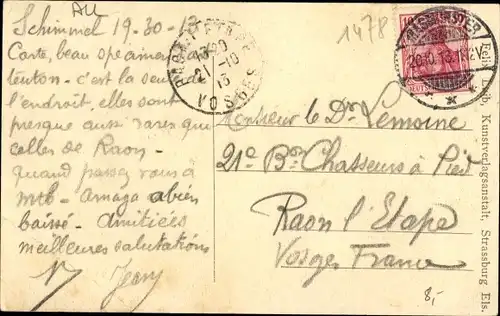 All
14783
Schimmel 19-30-13
Carte, beau specimen
teuton - c'est la seule de
l'endroit, elles sont
presque aussi rares que
celles de Raon -
quand passez vous à
baissé - Amitiés
meilleures salutations
Jean
RAON-L'ETAPE
13 20
21-10
13
VOSGES
20.10.13.
Monsieur le Dr Lemoine
21e Bon Chasseurs à Pied
Raon l'Etape
Vosges France
8,-
Felix Luib, Kunstverlagsanstalt, Strassburg Els.